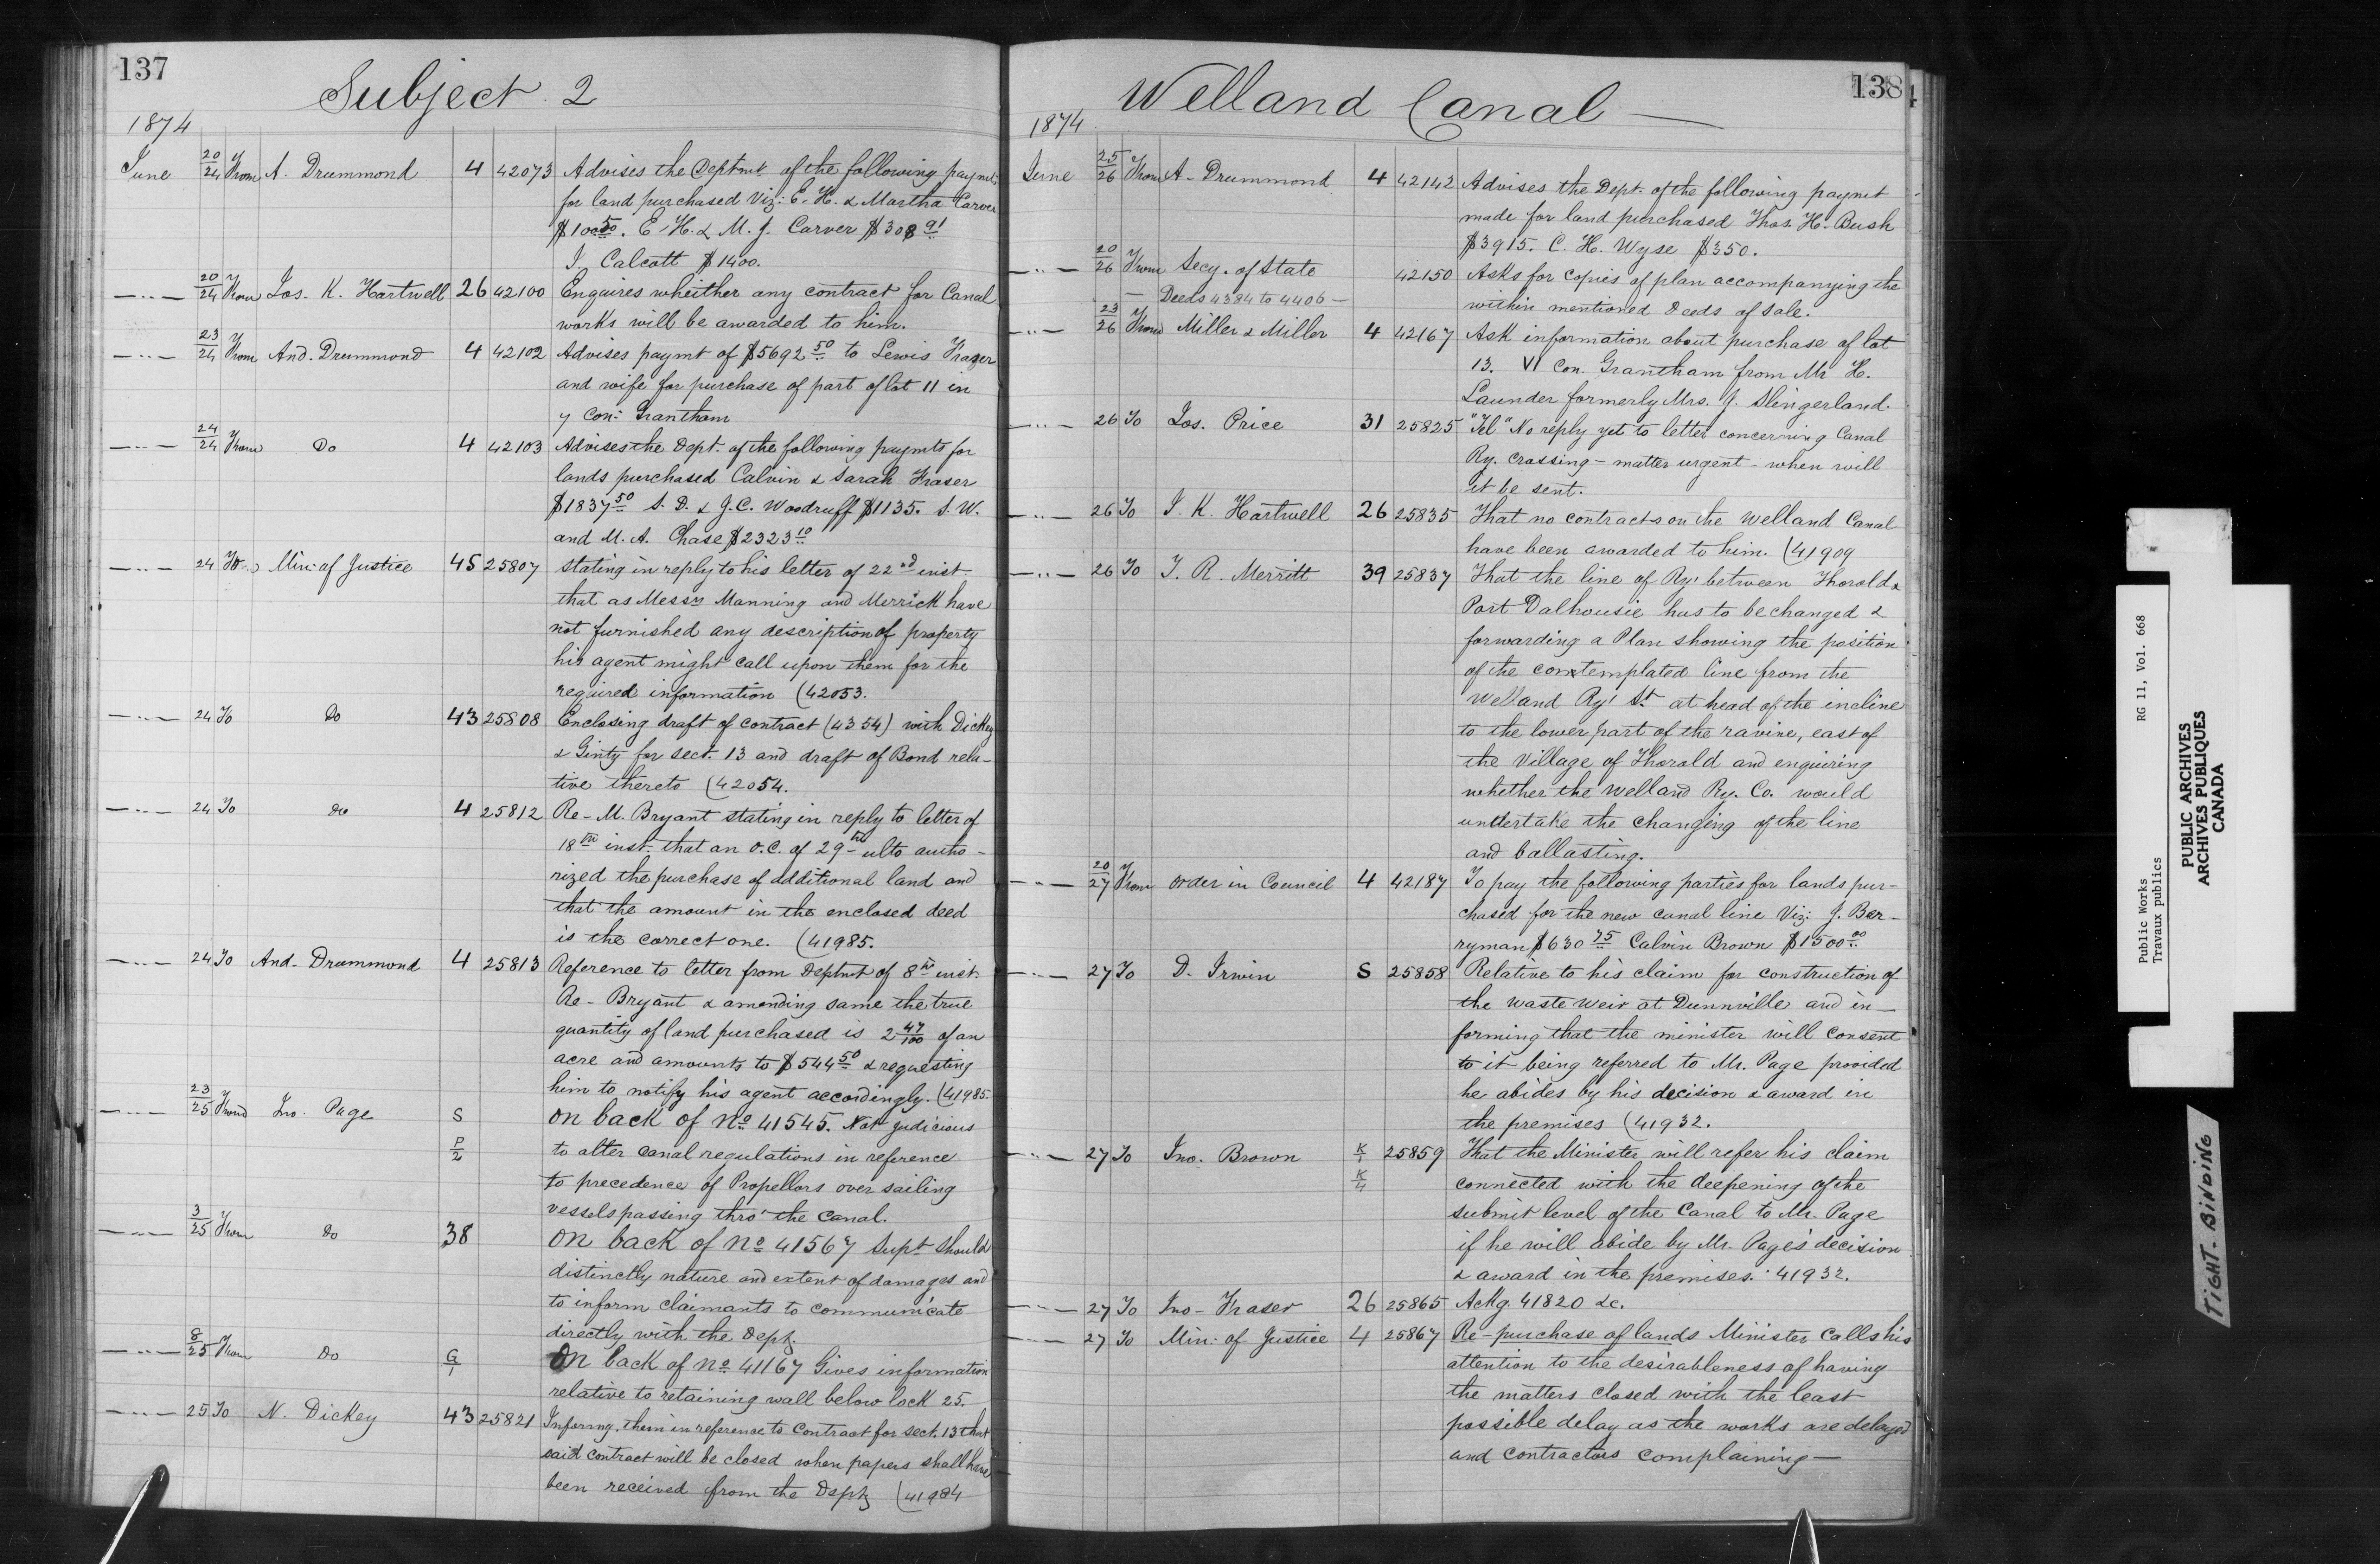 137
Subject 2
1874
June 20/24 From A. Drummond 4 42073 Advises the Deptmt of the following paymts
for land purchased Viz: E. H. & Martha Carver
$100.50. E. H. & M. J. Carver $308 91
I. Calcott $1400.
—"— 20/24 From Jos. K. Hartwell 26 42100 Enquires wheither any contract for Canal
works will be awarded to him.
—"— 23/24 From And. Drummond 4 42102 Advises paymt of $5692 50 to Lewis Frazer
and wife for purchase of part of lot 11 in
7 con: Grantham
—"— 24/24 From Do 4 42103 Advises the Dept. of the following paymts for
lands purchased Calvin & Sarah Fraser
$1837 50 S. D. & J. C. Woodruff $1135. S. W.
and M. A. Chase $2323 10
—"— 24 To Min: of Justice 45 25807 stating in reply to his letter of 22nd inst.
that as Messrs Manning and Merrick have
not furnished any description of property
his agent might call upon them for the
required information (42053.
—"— 24 To Do 43 25808 Enclosing draft of contract (4354) with Dickey
& Ginty for sect. 13 and draft of Bond rela-
tive thereto (42054.
—"— 24 To do 4 25812 Re- M. Bryant stating in reply to letter of
18th inst. that an O.C. of 29th ulto autho-
rized the purchase of additional land and
that the amount in the enclosed deed
is the correct one. (41985.
—"— 24 To And. Drummond 4 25813 Reference to letter from Deptmt of 8th inst.
Re- Bryant & amending same the true
quantity of land purchased is 2 47/100 of an
acre and amounts to $544 50 & requesting
him to notify his agent accordingly. (41985
—"— 23/25 From Jno. Page S On back of No 41545. Not judicious
P/2 to alter canal regulations in reference
to precedence of Propellors over sailing
vessels passing thro' the Canal.
—"— 3/25 From Do 38 On back of No 41567 Supt should
distinctly nature and extent of damages and
to inform claimants to communicate
directly with the Dept.
—"— 8/25 From Do G/1 On back of No 41167 Gives information
relative to retaining wall below lock 25.
—"— 25 To N. Dickey 43 25821 Informg. them in reference to Contract for sect. 13 that
said contract will be closed when papers shall have
been received from the Dept (41984
138
Welland Canal —
1874
June 25/26 From A. Drummond 4 42142 Advises the Dept. of the following paymt
made for land purchased Thos. H. Bush
$3915. C. H. Wyse $350.
—"— 20/26 From Secy. of State 42150 Asks for copies of plan accompanying the
— Deeds 4384 to 4406 — within mentioned Deeds of sale.
—"— 23/26 From Miller & Miller 4 42167 Ask information about purchase of lot
13. VI Con. Grantham from Mr H.
Launder formerly Mrs. J. Slingerland.
—"— 26 To Jos. Price 31 25825 "Tel" No reply yet to letter concerning Canal
Ry. crossing - matter urgent - when will
it be sent.
—"— 26 To J. K. Hartwell 26 25835 That no contracts on the Welland Canal
have been awarded to him. (41909
—"— 26 To T. R. Merritt 39 25837 That the line of Ry' between Thorold &
Port Dalhousie has to be changed &
forwarding a Plan showing the position
of the contemplated line from the
Welland Ry' St. at head of the incline
to the lower part of the ravine, east of
the Village of Thorold and enquiring
whether the Welland Ry. Co. would
undertake the changing of the line
and ballasting.
—"— 20/27 From order in Council 4 42187 To pay the following parties for lands pur-
chased for the new canal line Viz: J. Ber-
ryman $630 75 Calvin Brown $1500 00.
—"— 27 To D. Irwin S 25858 Relative to his claim for construction of
the waste weir at Dunnville and in-
forming that the minister will consent
to it being referred to Mr. Page provided
he abides by his decision & award in
the premises (41932.
—"— 27 To Jno. Brown K/1 25859 That the Minister will refer his claim
K/4 connected with the deepening of the
submit level of the Canal to Mr. Page
if he will abide by Mr. Page's decision
& award in the premises. 41932.
—"— 27 To Jno- Fraser 26 25865 Ackg. 41820 &c.
—"— 27 To Min: of Justice 4 25867 Re-purchase of lands Minister calls his
attention to the desirableness of having
the matters closed with the least
possible delay as the works are delayed
and contractors complaining —
Public Works
Travaux publics
RG 11, Vol. 668
PUBLIC ARCHIVES
ARCHIVES PUBLIQUES
CANADA
TIGHT-BINDING